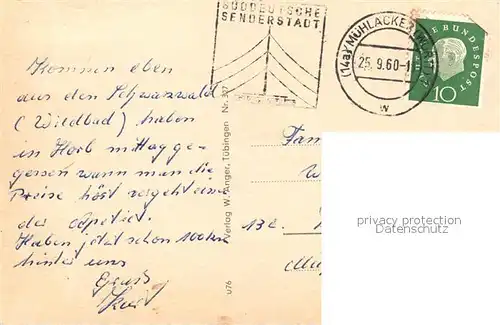 SÜDDEUTSCHE
SENDERSTADT
(14a) MÜHLACKER
25.9.60-1
W
DEUTSCHE BUNDESPOST
10
Kommen eben
aus den Schwarzwald
(Wildbad) haben
in Horb mittagge-
gessen wann man die
Preise hört vergeht einem
der Apetiet.
Haben jetzt schon 100 km
hinter uns
Gruß
Karl
Verlag W. Anger, Tübingen Nr. 327
U76
Fam
W
13a
privacy protection